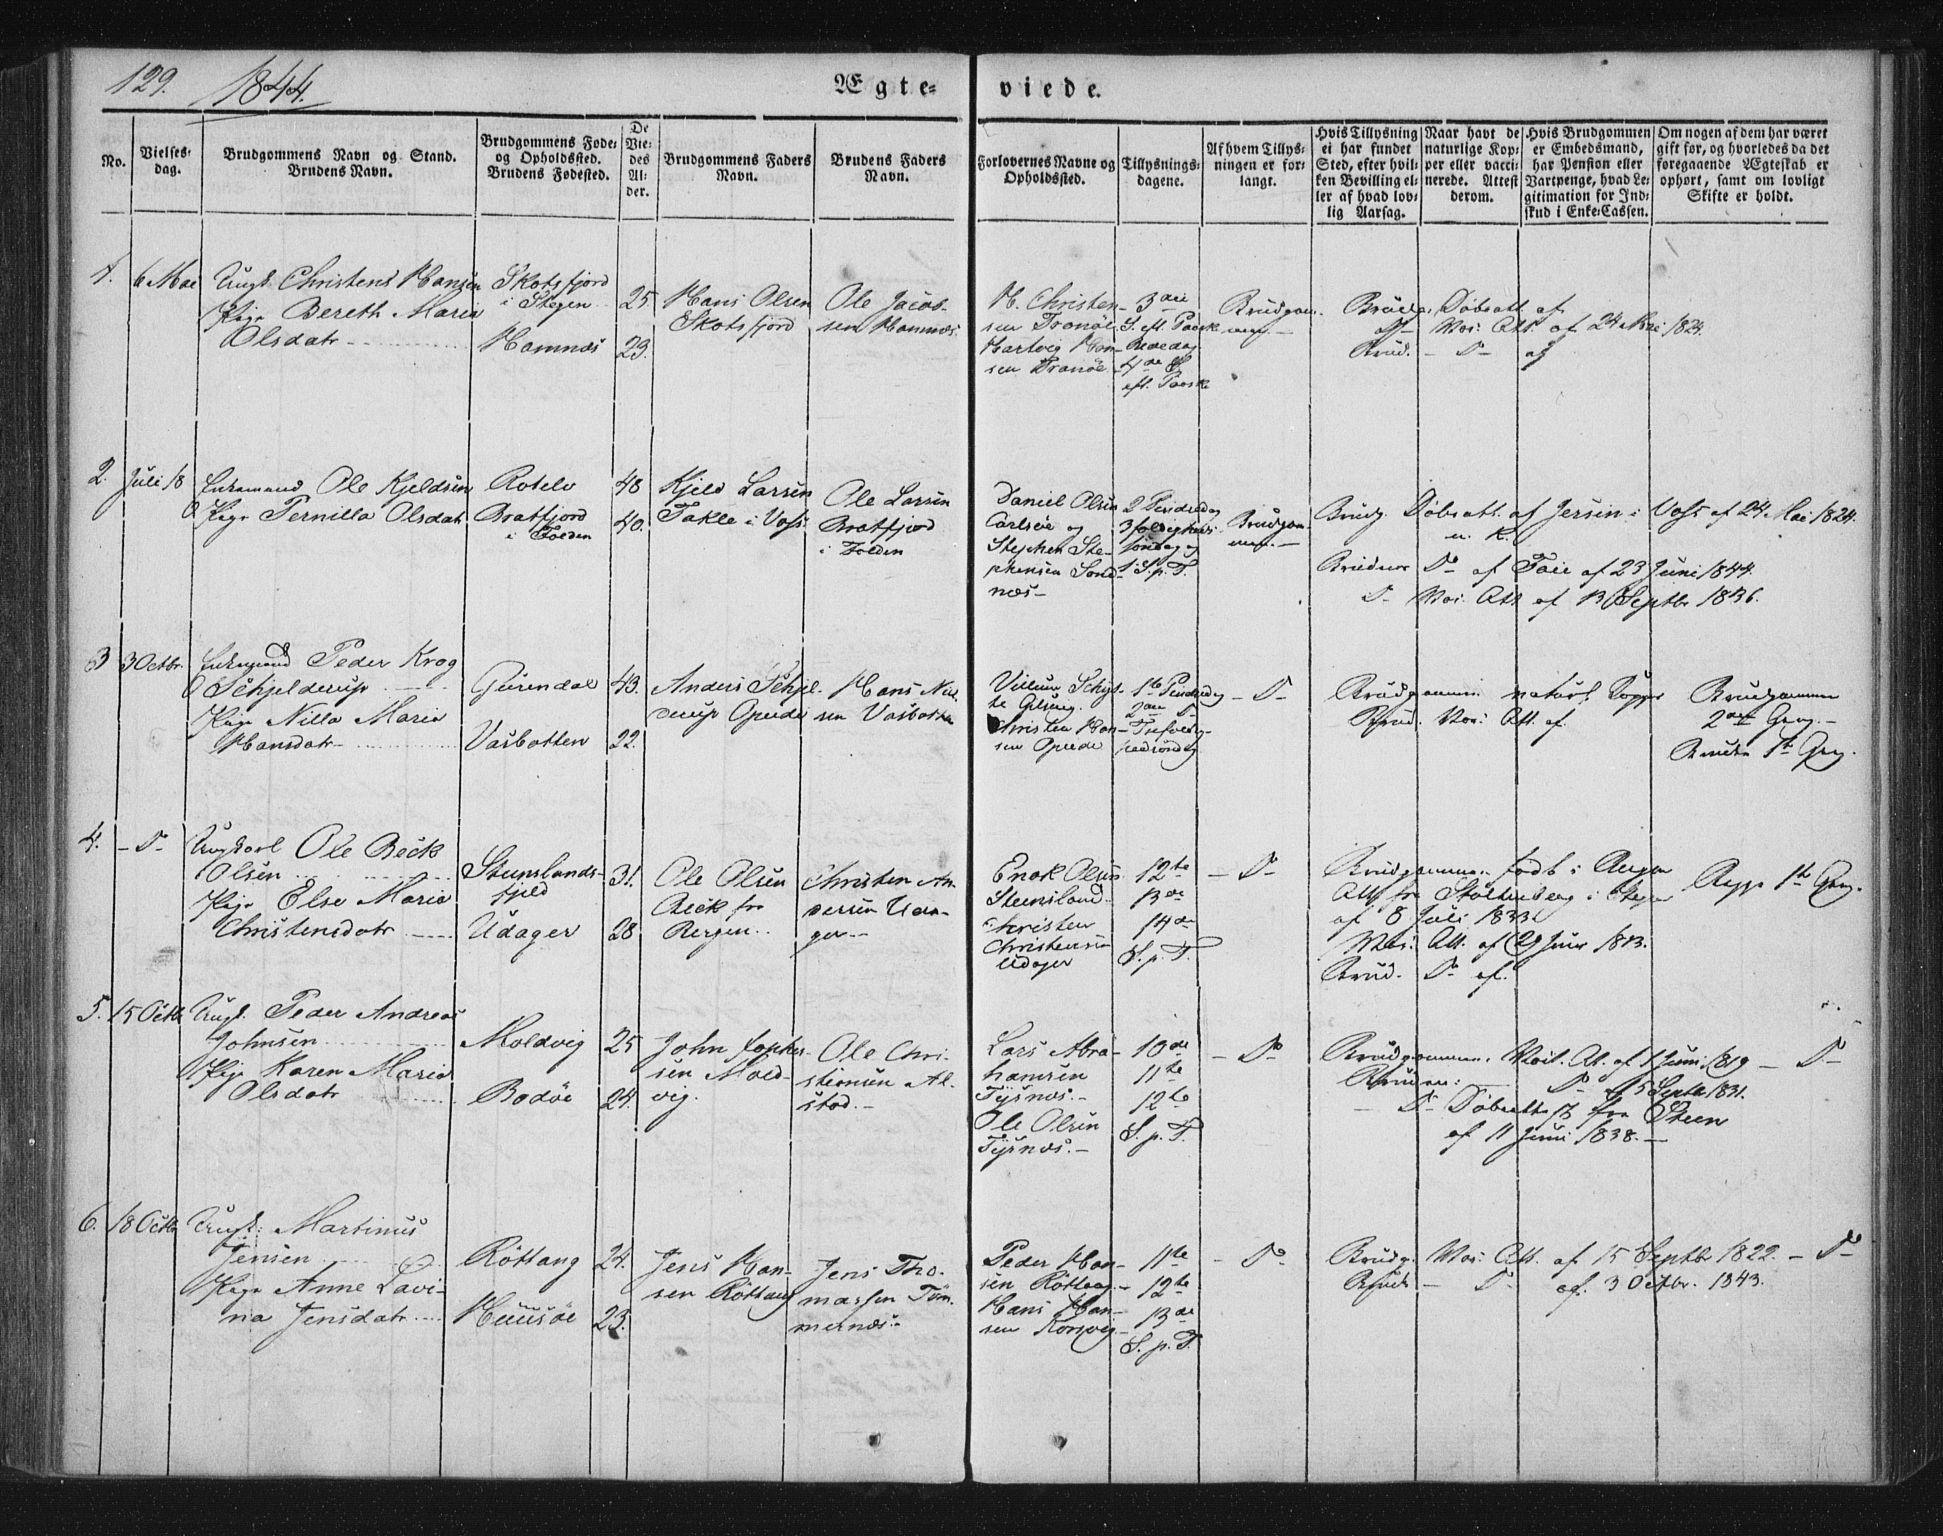 129. 1844.
Ægte- viede.
No.
Vielses-
dag.
Brudgommens Navn og Stand.
Brudens Navn.
Brudgommens Føde-
og Opholdssted.
Brudens Fødested.
De
Vie-
des
Al-
der.
Brudgommens Faders
Navn.
Brudens Faders
Navn.
Forlovernes Navne og
Opholdssted.
Tillysnings-
dagene.
Af hvem Tillys-
ningen er for-
langt.
Hvis Tillysning
ei har fundet
Sted, efter hvil-
ken Bevilling el-
ler af hvad lov-
lig Aarsag.
Naar havt de
naturlige Kop-
per eller vacci-
nerede. Attest
derom.
Hvis Brudgommen
er Embedsmand,
har Pension eller
Vartpenge, hvad Le-
gitimation for Ind-
skud i Enke-Cassen.
Om nogen af dem har været
gift før, og hvorledes da det
foregaaende Ægteskab er
ophørt, samt om lovligt
Skifte er holdt.
1. 6 Mai
Ungk. Christens Hansen
Pige Bereth Maria
Olsdatr
Skotsfjord
i Stegen
Hamnæs
25
23.
Hans Olsen
Skotsfjord
Ole Jacob-
sen Hamnæs
H. Christen-
sen Tranöe
Hartvig Han-
sen Tranöe
3die
S. eft. Paaske
Bededag
4de S.
eft. Paaske
Brudgom-
men
Brudg. Döbsatt. af
D Vac. Att. af 24 Mai 1824.
Brud. - D - af
2. Juli 18
Enkemand Ole Kjeldsen
Pige Pernilla Olsdatr
Rotelv
Bratfjord
i Folden
48
40.
Kjeld Larsen
Takle i Voss
Ole Larsen
Bratfjord
i Folden
Daniel Olsen
Carlsöe og
Stephen Ste-
phensen Sand-
næs
2 Pindsedag
Söndag og
1 S. p. T.
Brudgom-
men
Brudg. Döbsatt. af Jersin i Voss af 24 Mai 1824.
Brudens D af 23 Juni 1844.
D Vac. Att. af 13 Septbr 1836.
3 3 Octbr.
Enkemand Peder Krog
Schjelderup
Pige Nilla Maria
Hansdatr
Gurendal
Vasbotten
43.
22.
Anders Schjel-
derup Opeide
Hans Niel-
sen Vasbotten
Villum Schjt-
te
Christen Han-
sen Opeide
1ste Pindsedag
2den D
D
Brudgommen naturl. Kopper
Brud. Vac. Att. af
Brudgommen
2den Gang.
Bruden 1ste Gang.
4. D
Ungkarl Ole Beck
Olsen
Pige Else Maria
Christensdatr
Stenslands-
fjeld
Udager
31.
28
Ole Olsen
Beck fra
Bergen
Christen An-
dersen Uda-
ger
Enok Olsen
Stensland
Christen
Christensen
Udager
12te
13de
14de
S. p. T.
D
Brudgommen födt i Bergen
Att. fra Stoltenberg i Stegen
af 8 Juli 1833.
Vac. Att. af 29 Juni 1813.
Brud. D af.
Begge 1ste Gang.
5. 15 Octbr
Ungk. Peder Andreas
Johnsen
Pige Karen Maria
Olsdatr
Moldvig
Bodöe
25
24.
John Jonker-
sen Mold-
vig.
Ole Chri-
stiansen Al-
stad.
Lars Abra-
hamsen
Tysnæs.
Ole Olsen
Tysnæs.
10de
11te
12te
S. p. T.
D
Brudgommen Vac. At. af 1 Juni 1819
Bruden: D af 5 Septbr 1831.
D Döbsatt. fra Steen
af 11 Juni 1838.
D
6. 18 Octbr
Ungk. Martinus
Jensen
Pige Anne Lavi-
na Jensdatr
Röttang
Huusöe
24.
23.
Jens Han-
sen Röttang
Jens Tho-
massen Töm-
mernæs
Peder Han-
sen Röttang
Hans Han-
sen Korsvig
11te
12te
13de
S. p. T.
D
Brudg. Vac. Att. af 15 Septbr 1822.
Brud. D af 3 Octbr. 1843.
D